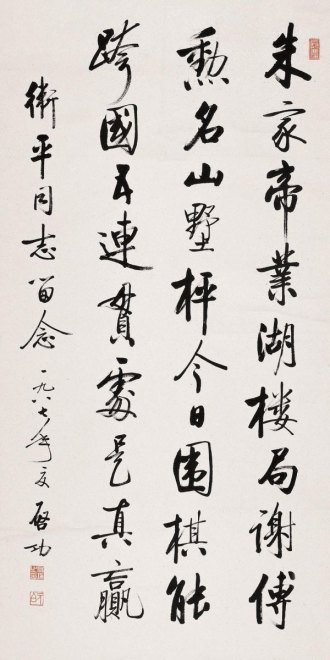 朱家帝業湖樓局謝傅
勳名山墅枰今日圍棋能
跨國互連貫處是真贏
衛平同志留念 一九八七年夏 啓功